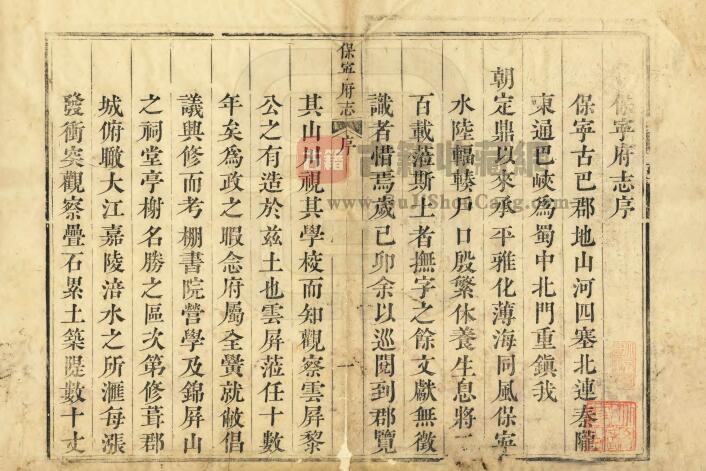 保寧府志序
保寧古巴郡地山河四塞北連秦隴
東通巴峽為蜀中北門重鎮我
朝定鼎以來承平雅化薄海同風保寧
水陸輻輳戶口殷繁休養生息將二
百載蒞斯土者撫字之餘文獻無徵
識者惜焉歲己卯余以巡閱到郡覽
保寧府志 序 一
其山川視其學校而知觀察雲屏黎
公之有造於茲土也雲屏蒞任十數
年矣為政之暇念府屬全黌就敝倡
議興修而考棚書院營學及錦屏山
之祠堂亭榭名勝之區次第修葺郡
城俯瞰大江嘉陵涪水之所滙每漲
發衝突觀察疊石累土築隄數十丈
古籍
古籍收藏網
www.GuJiShouCang.com